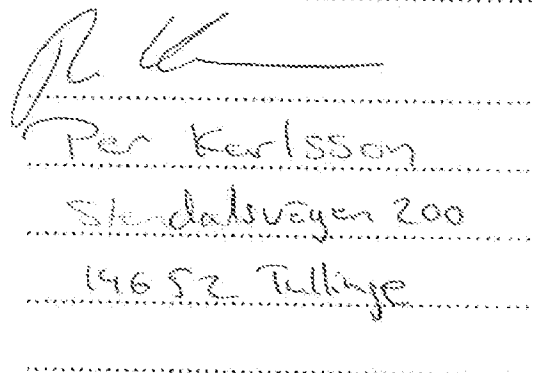 Per Karlsson
Stendalsvägen 200
146 52 Tullinge